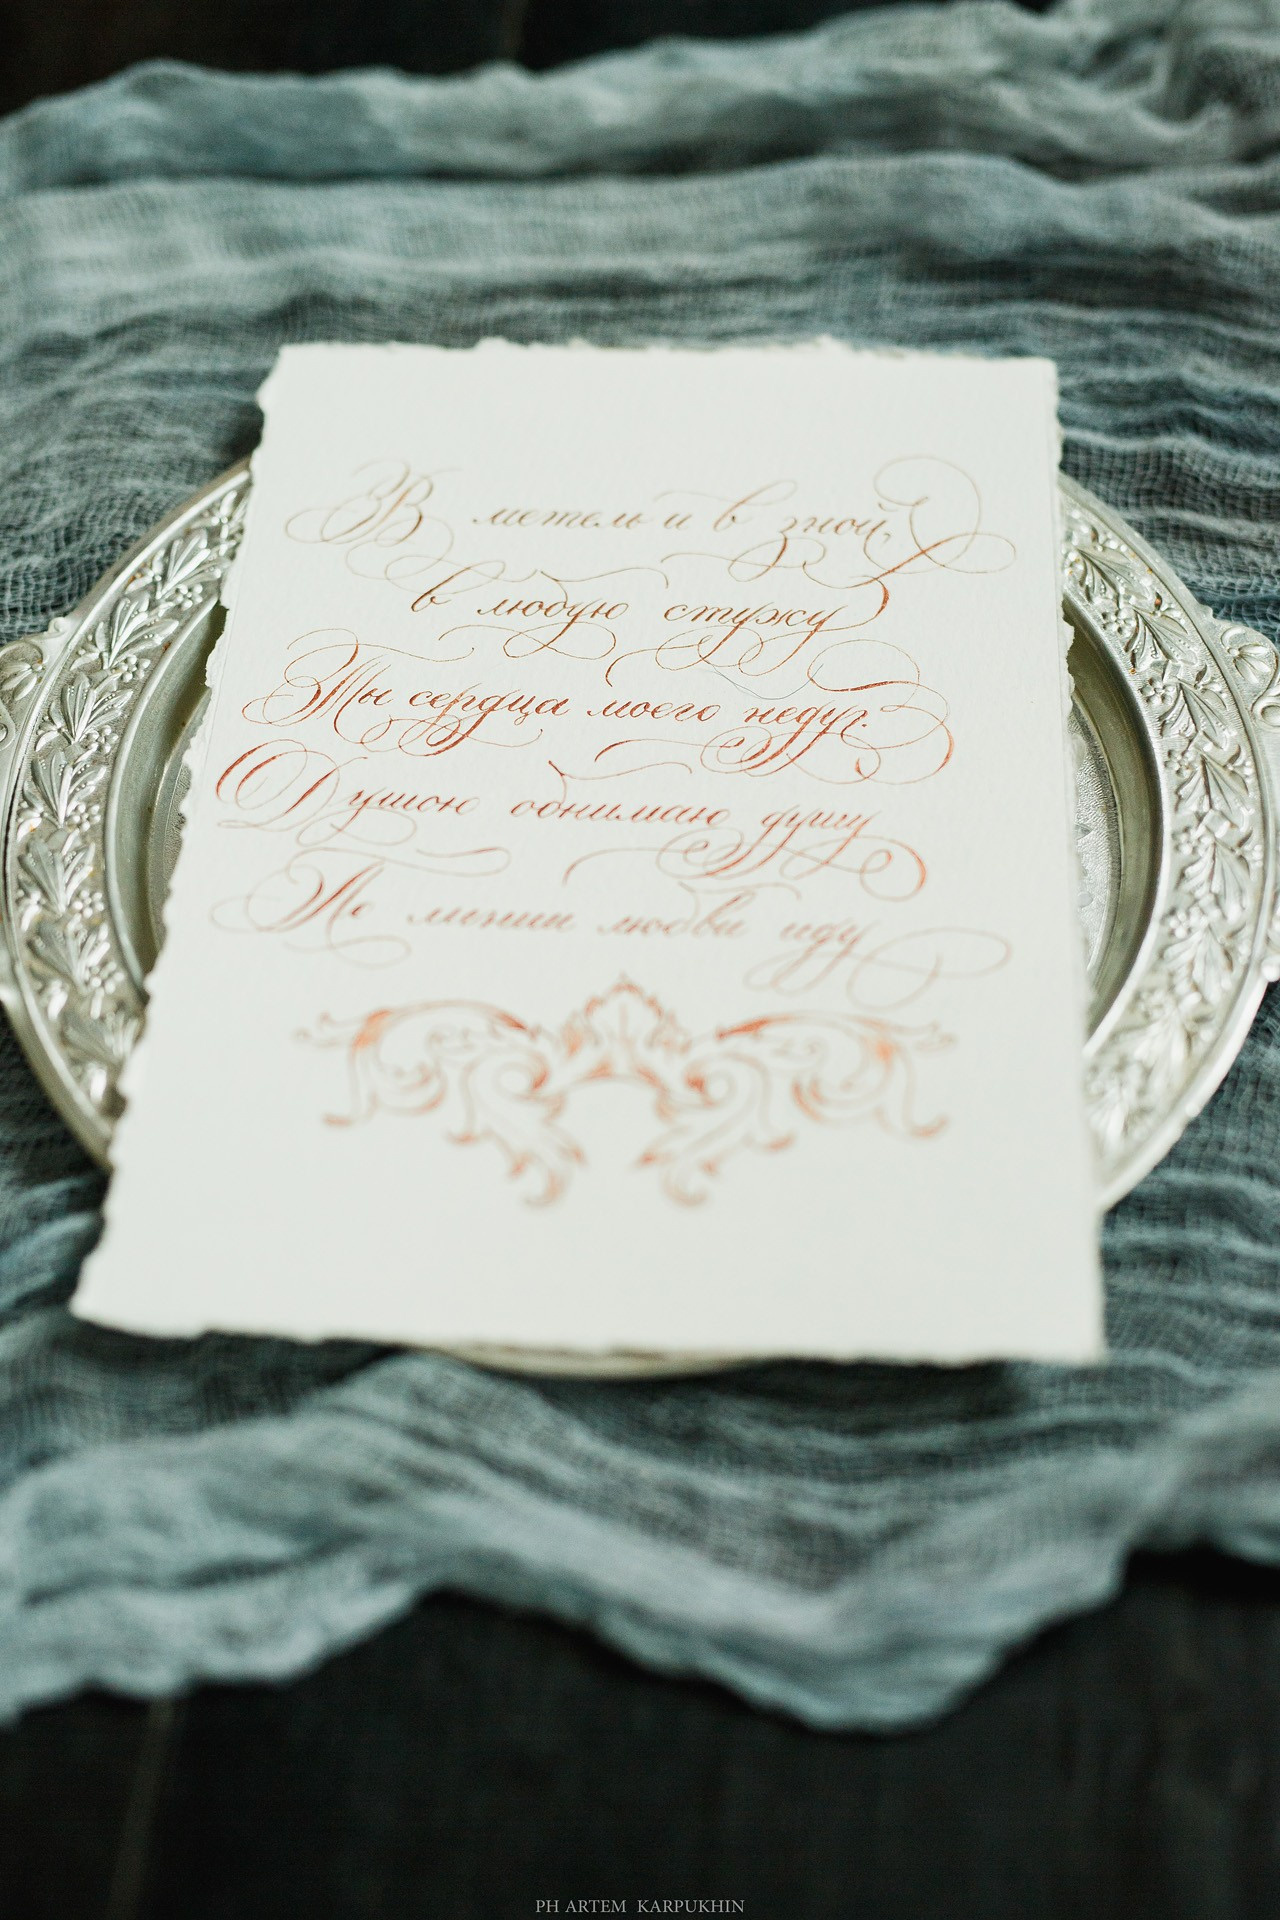 В метель и в зной,
в любую стужу
Ты сердца моего недуг.
Душою обнимаю душу
По линии любви иду
PH ARTEM KARPUKHIN